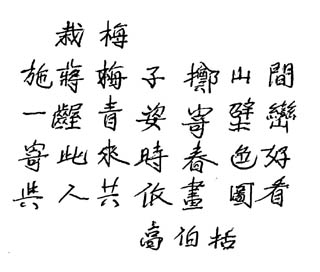 栽梅
施蔣梅子擲山間
一青姿寄巒
寄此來時春色好
與人共依畫圖看
高伯括